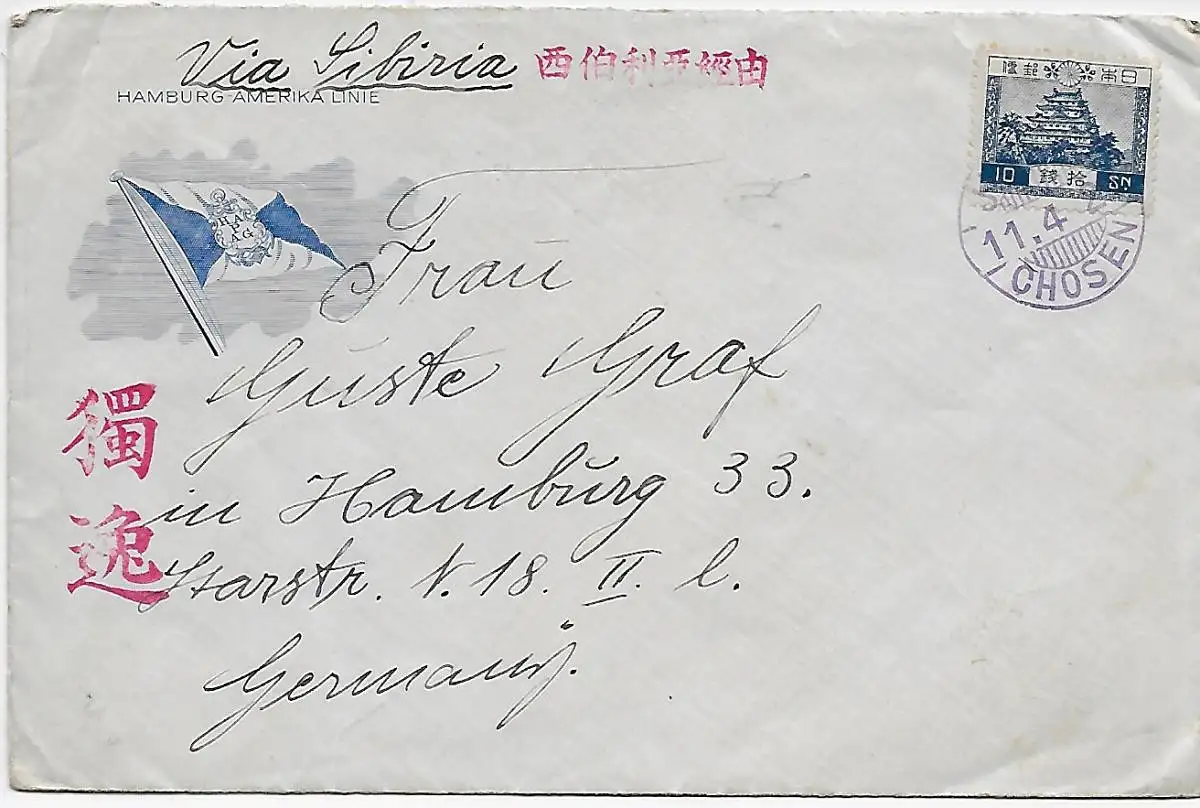 Via Sibiria 西伯利亞經由
HAMBURG-AMERIKA LINIE
HAPAG
便郵本日
10 錢拾 SN
11.4
CHOSEN
Frau
Guste Graf
in Hamburg 33.
Isarstr. N. 18. II. l.
Germany.
獨逸